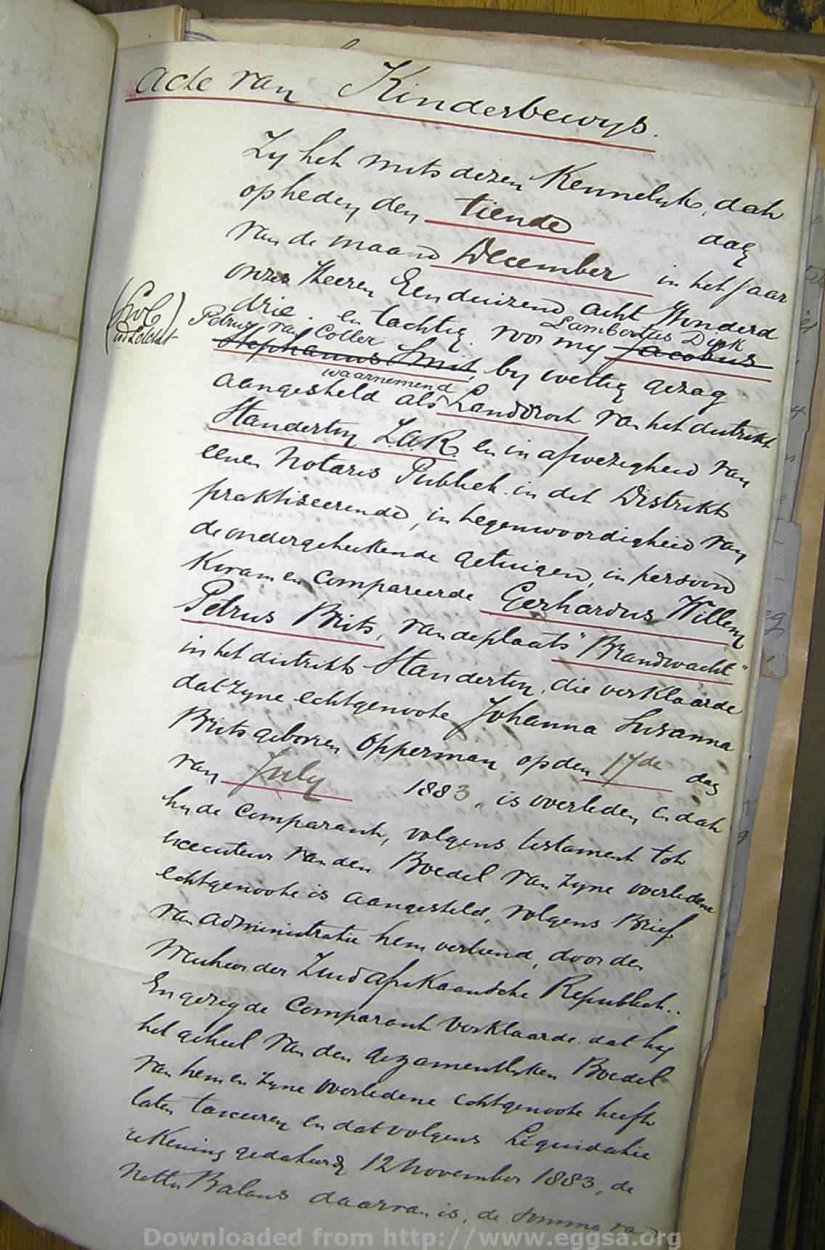 Acte van Kinderbewys.
Zy het mits dezen Kennelyk, dat
op heden den tiende dag
van de maand December in het Jaar
onzes Heeren Een duizend acht Honderd
drie en tachtig. voor my Jacobus Lambertus Dirk
Stephanus Smit Petrus van Coller by wettig gezag
aangesteld als waarnemend Landdrost van het distrikt
Standerton Z.A.R. en in afwezigheid van
eenen Notaris Publiek in dit Distrikt
praktiseerende, in tegenwoordigheid van
de ondergeteekende getuigen, in persoon
Kwam en Compareerde Gerhardus Willem
Petrus Brits, van de plaats "Brandwacht"
in het distrikt Standerton, die verklaarde
dat zyne echtgenoote Johanna Susanna
Brits geboren Opperman op den 17de dag
van July 1883, is overleden en dat
hy de Comparant, volgens testament tot
Executeur van den Boedel van zyne overledene
echtgenoote is aangesteld, volgens Brief
van administratie hem verleend, door den
Weesheer der Zuid Afrikaansche Republiek..
En gezegde Comparant verklaarde dat hy
het geheel van den gezamentlyken Boedel
van hem en zyne overledene echtgenoote heeft
laten taxeeren en dat volgens Liquidatie
rekening gedateerd 12 November 1883, de
netto Balans daarvan is, de somma van
Downloaded from http://www.eggsa.org